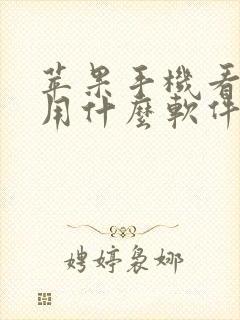 苹果手機看
用什麼軟件
娉婷裊娜